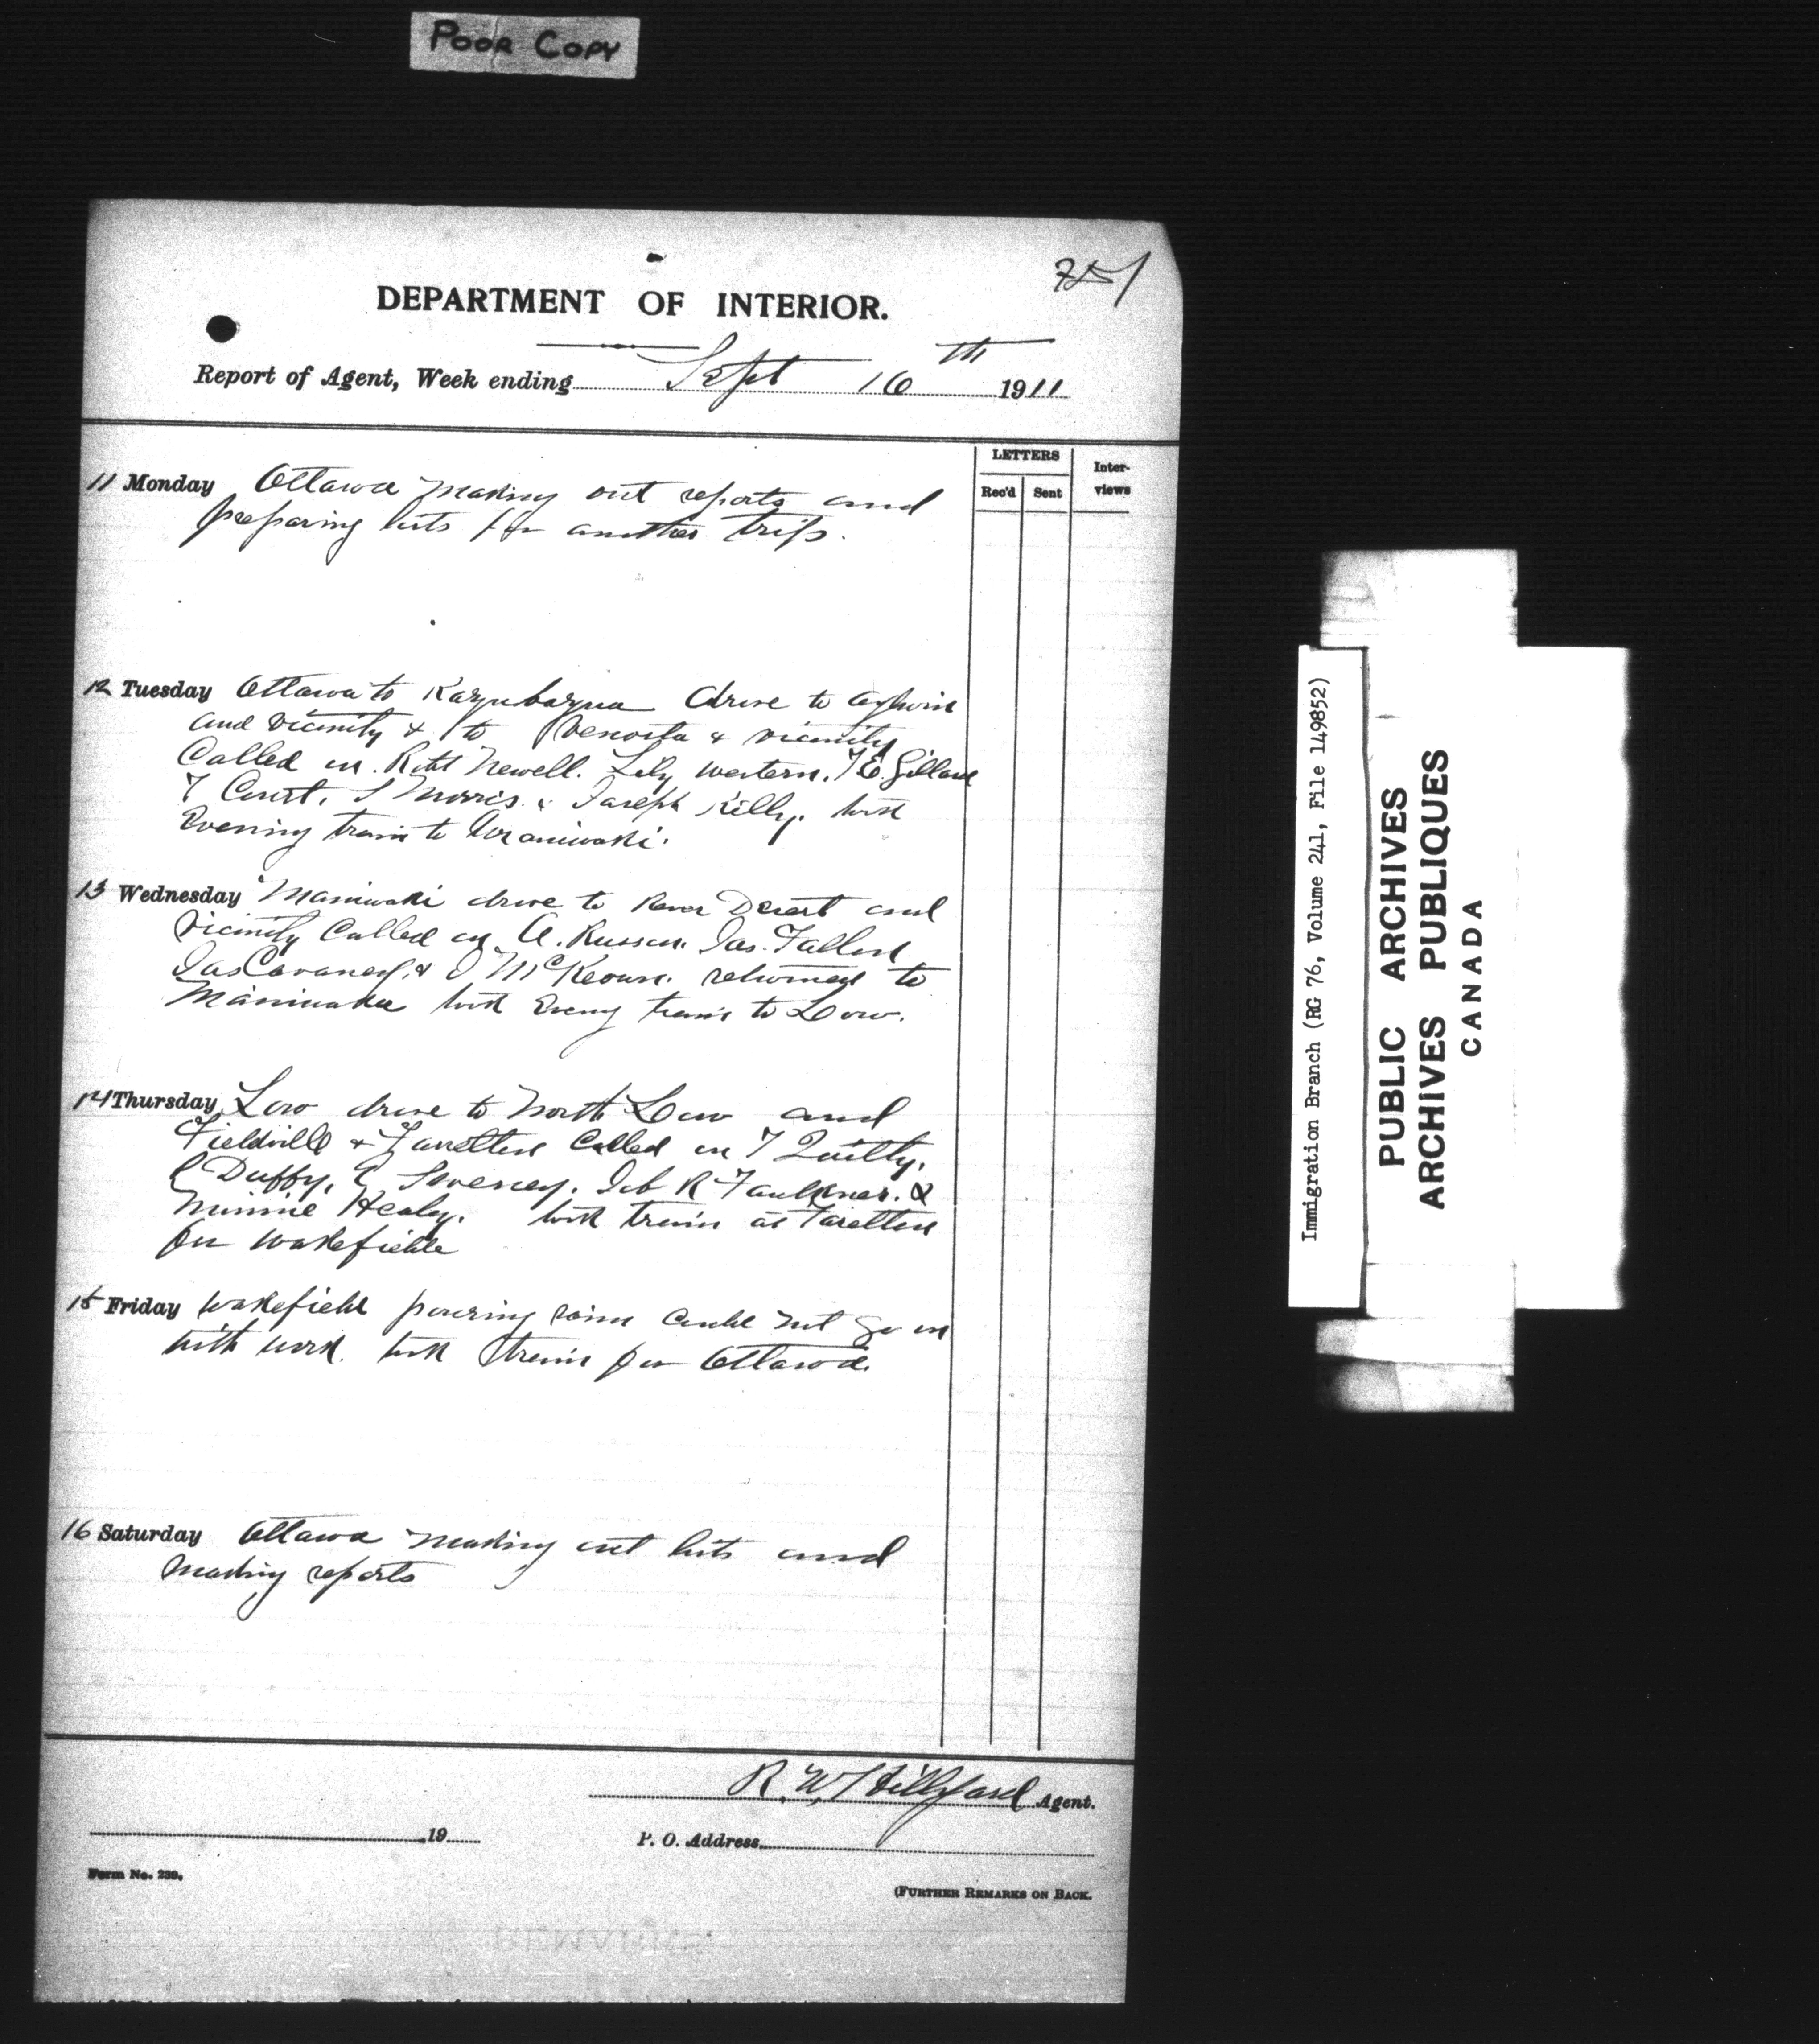 POOR COPY
751
DEPARTMENT OF INTERIOR.
Report of Agent, Week ending Sept 16th 1911
LETTERS
Rec'd Sent
Inter-
views
11 Monday Ottawa making out reports and
preparing lists for another trip.
12 Tuesday Ottawa to Kazubazua drive to Aylwin
and vicinity & to Venosta & vicinity
Called on Robt Newell. Lily Western. T E. Gillard
T Court. S Morris & Joseph Kelly. took
Evening train to Maniwaki.
13 Wednesday Maniwaki drive to River Desert and
Vicinity Called on A. Russen. Jas. Fallen
Jas Cavaney, & J McKeown. returned to
Maniwaki took Eveng train to Low.
14 Thursday Low drive to North Low and
Fieldville & Farrelton Called on T Quilty.
Duffy. Sveney. R Faulkner. &
Minnie Healey. took train at Farelton
for Wakefield
15 Friday Wakefield pouring rain could not go on
with work. took train for Ottawa.
16 Saturday Ottawa making out lists and
making reports
R. W. Hillyard Agent.
19
P. O. Address
Form No. 239.
(FURTHER REMARKS ON BACK.
Immigration Branch (RG 76, Volume 241, File 149852)
PUBLIC ARCHIVES
ARCHIVES PUBLIQUES
CANADA